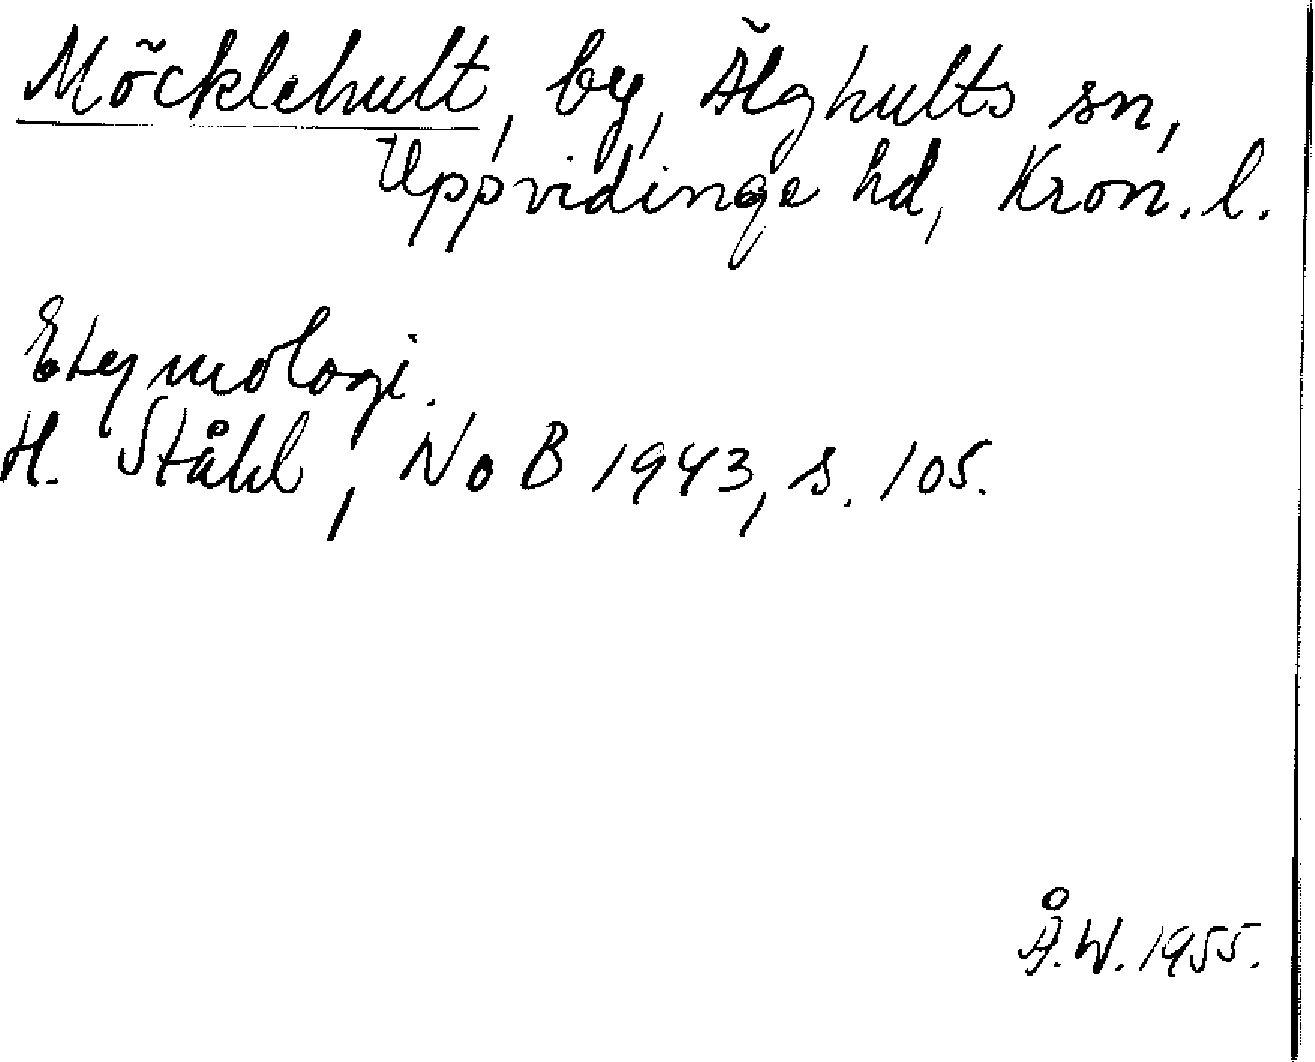 Möcklehult, by, Älghults sn,
Uppvidinge hd, Kron. l.
Etymologi.
H. Ståhl, NoB 1943, s. 105.
Å.W. 1955.